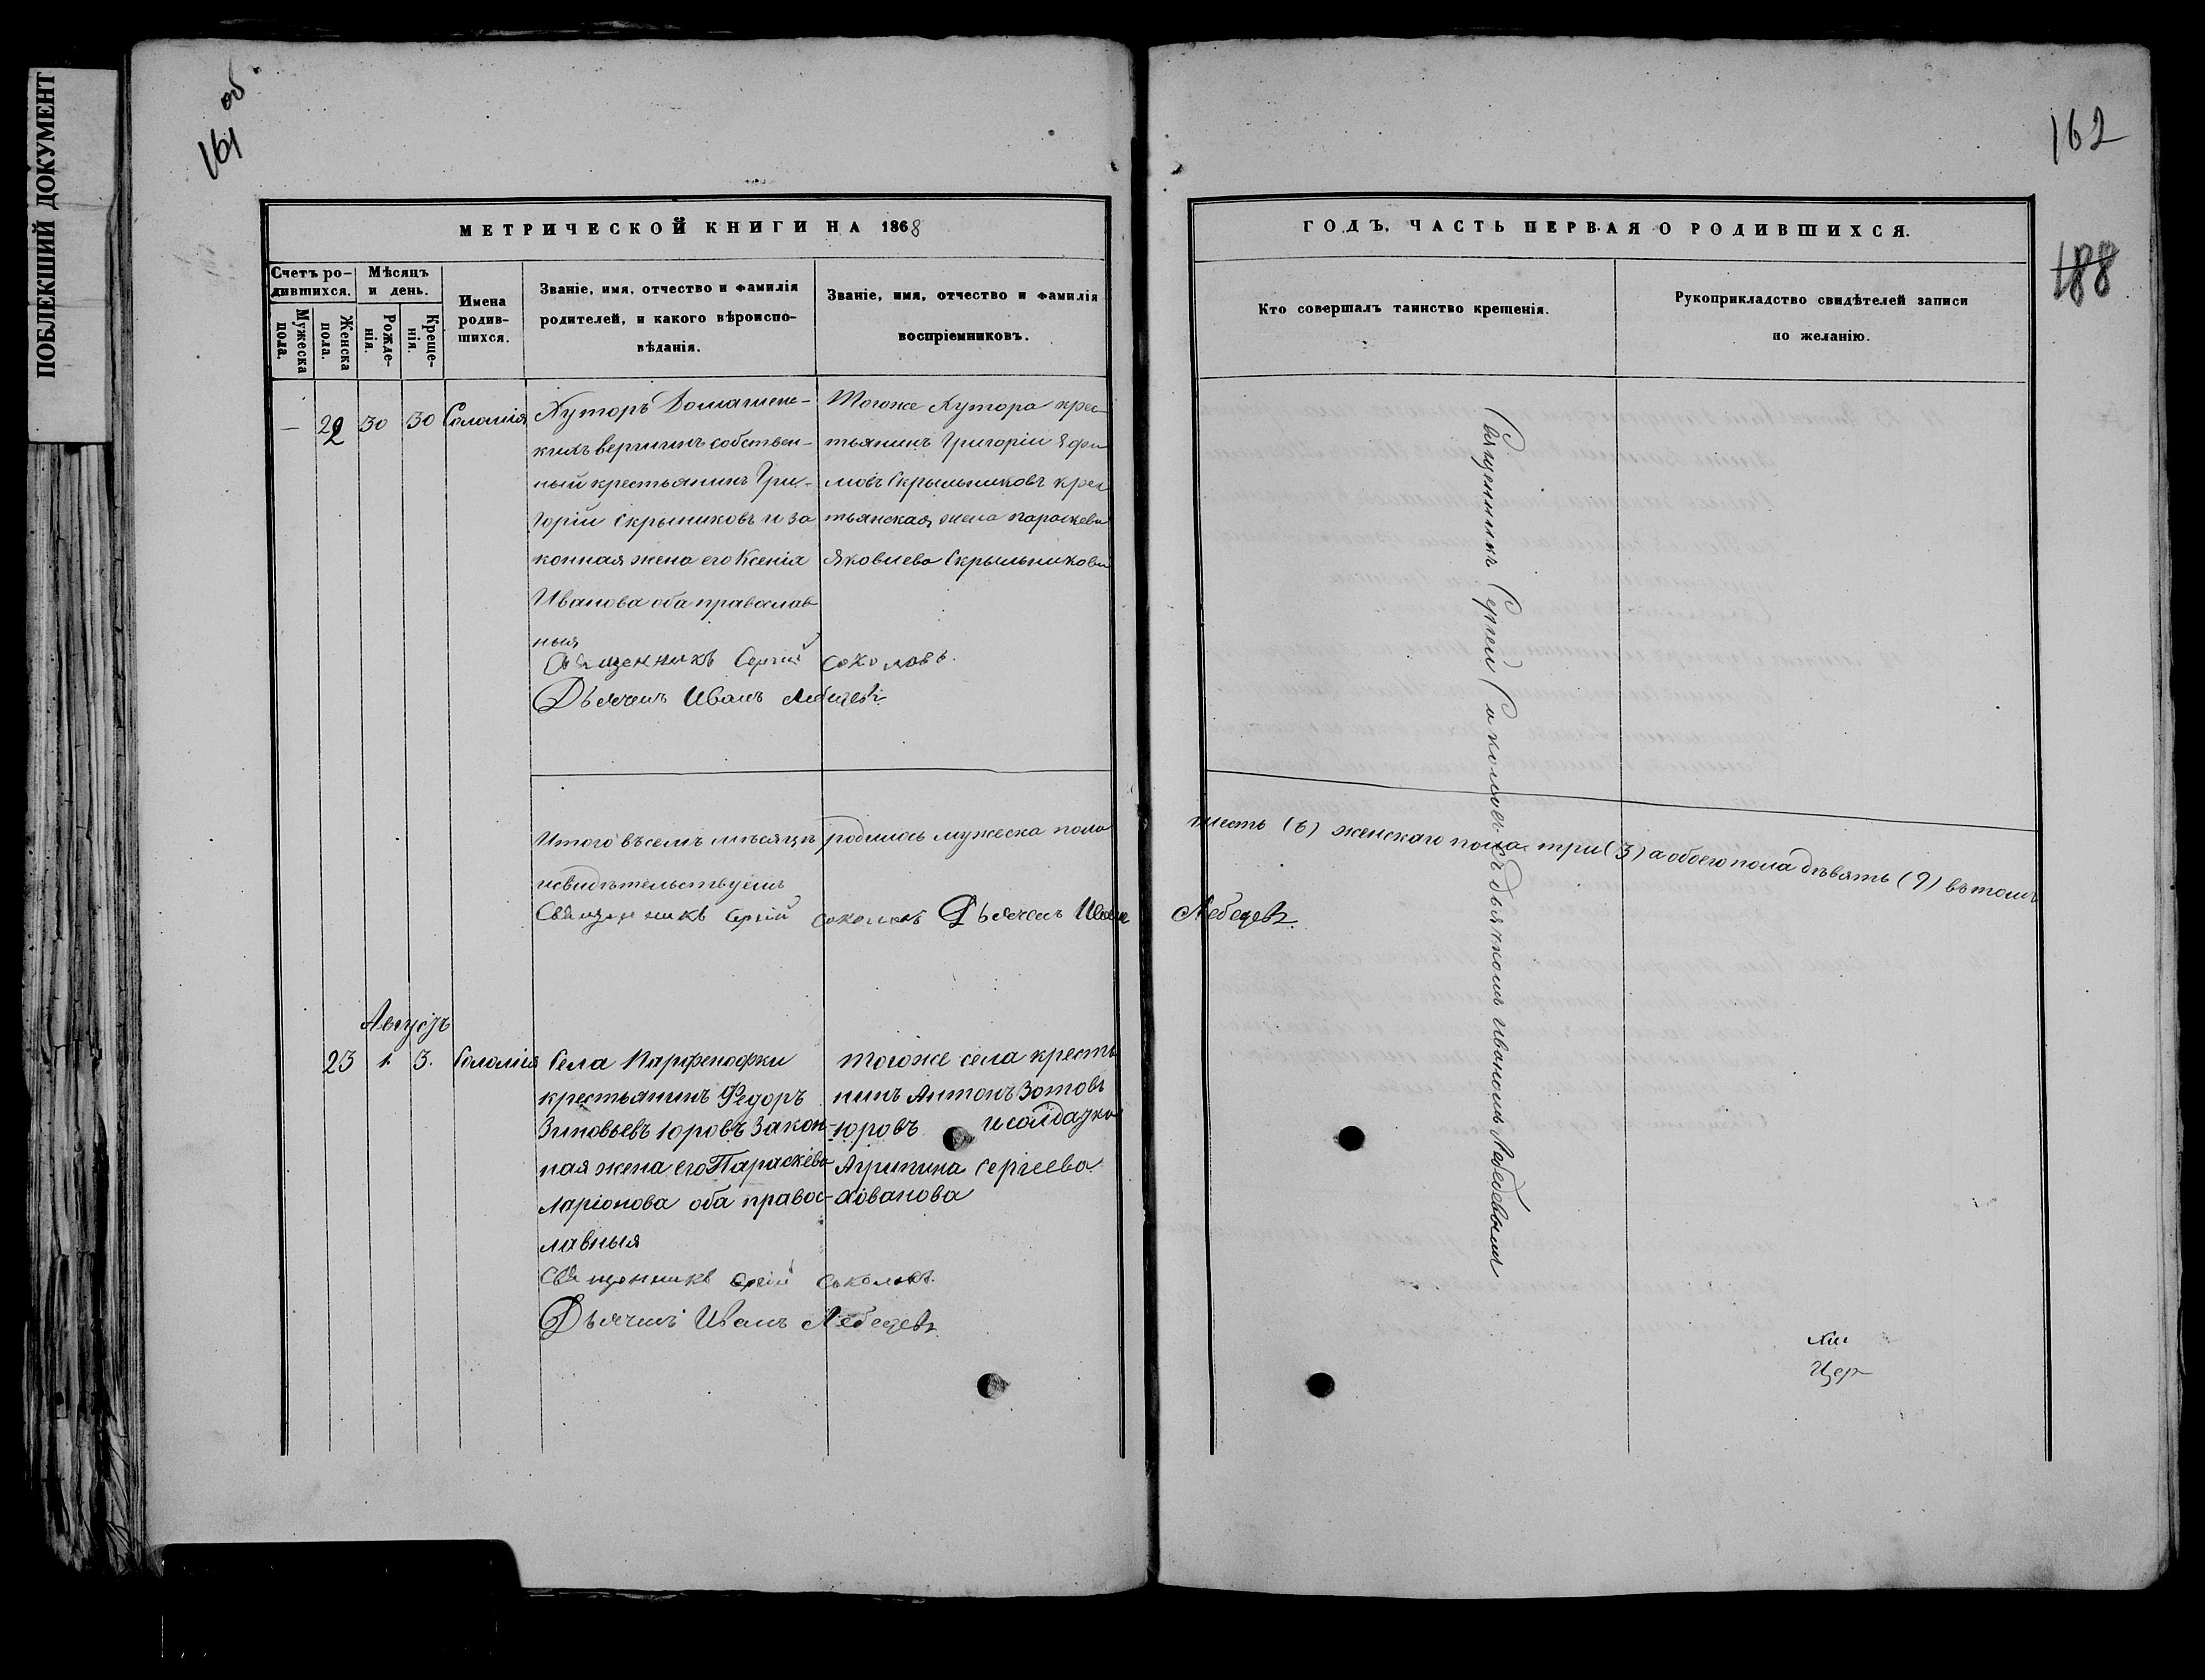 ПОБЛЕКШИЙ ДОКУМЕНТ
161 об
МЕТРИЧЕСКОЙ КНИГИ НА 1868
Счетъ родившихся.
Мѣсяцъ и день.
Мужеска пола.
Женска пола.
Рожденія.
Крещенія.
Имена родившихся.
Званіе, имя, отчество и фамилія
родителей, и какого вѣроиспо-
вѣданія.
Званіе, имя, отчество и фамилія
воспріемниковъ.
— 22 30 30 Соломія
Хуторъ
кихъ вершинъ собствен-
ный крестьянинъ Гри-
горій Скрыниковъ и за
конная жена его Ксенія
Иванова оба православ
ныя
Тогоже Хутора крес-
тьянинъ Григорій Ефи
мовъ Скрыльниковъ крес
тьянская жена параскева
Яковлева Скрыльникова
Священникъ Сергій Соколовъ.
Дьячекъ Иванъ Лебедевъ.
Итого въ семъ мѣсяцѣ родилось мужеска пола
и свидѣтельствуемъ
Священникъ Сергій Соколовъ Дьячекъ Иванъ
Августъ
23 1. 3. Соломія
Села Парфенофки
крестьянинъ Федоръ
Зиновьевъ Юровъ Закон-
ная жена его Параскева
Ларіонова оба правос-
лавныя
тогоже села кресть
нинъ Антонъ Зотовъ
Юровъ и солдатка
Агрипина Сергеева
Хованова
Священникъ Сергій Соколовъ.
Дьячекъ Иванъ Лебедевъ
162
188
ГОДЪ, ЧАСТЬ ПЕРВАЯ О РОДИВШИХСЯ.
Кто совершалъ таинство крещенія.
Рукоприкладство свидѣтелей записи
по желанію.
Священникъ Сергей Соколовъ съ дьячкомъ иваномъ Лебедевымъ
шесть (6) женскаго пола три (3) а обоего пола дѣвять (9) въ томъ
Лебедевъ.
Цер